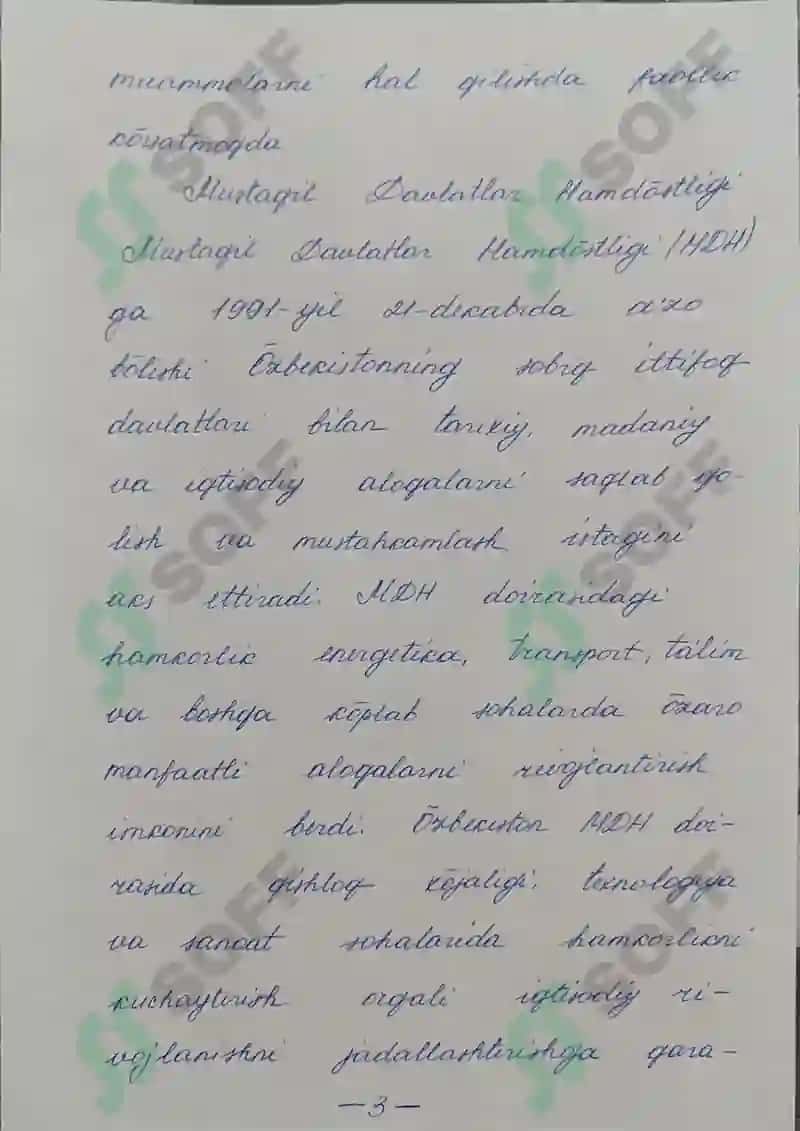 muammolarni hal qilishda faollik
kōrsatmoqda
Mustaqil Davlatlar Hamdōstligi
Mustaqil Davlatlar Hamdōstligi (MDH)
ga 1991-yil 21-dekabrda a'zo
bōlishi Ōzbekistonning sobiq ittifoq
davlatlari bilan tarixiy, madaniy
va iqtisodiy aloqalarni saqlab qo-
lish va mustahkamlash istagini
aks ettiradi. MDH doirasidagi
hamkorlik energetika, transport, ta'lim
va boshqa kōplab sohalarda ōzaro
manfaatli aloqalarni rivojlantirish
imkonini berdi. Ōzbekiston MDH doi-
rasida qishloq xōjaligi, texnologiya
va sanoat sohalarida hamkorlikni
kuchaytirish orqali iqtisodiy ri-
vojlanishni jadallashtirishga qara-
-3-
SOFF
SOFF
SOFF
SOFF
SOFF
SOFF